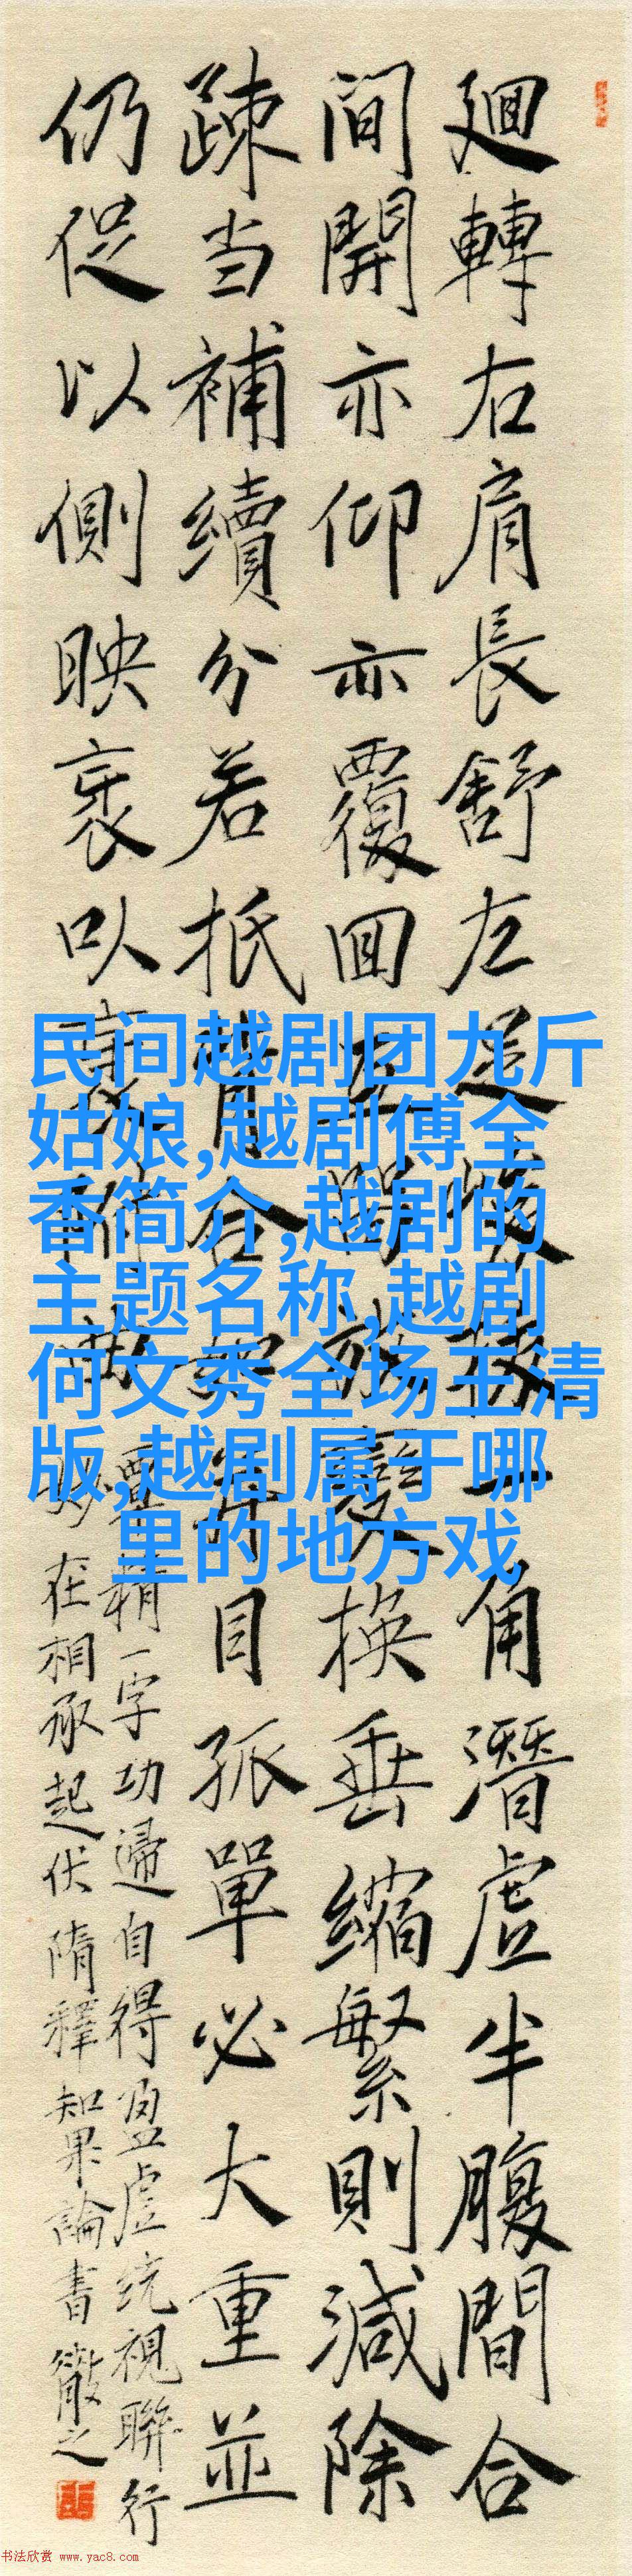 廻轉右肩長舒左足峻拔一角潛虛半腹間合
間開亦仰亦覆回互留放變換垂縮繁則減除
疎当補續分若抵背合如對目孤單必大重並
仍促以側映衺以衺附曲
覃精一字功歸自得盈虛统視聯行
妙在相承起伏隋釋智果論書徹之
民间越剧团九斤
姑娘,越剧傅全
香简介,越剧的
主题名称,越剧
何文秀全场王清
版,越剧属于哪
里的地方戏,
书法欣赏 www.yac8.com